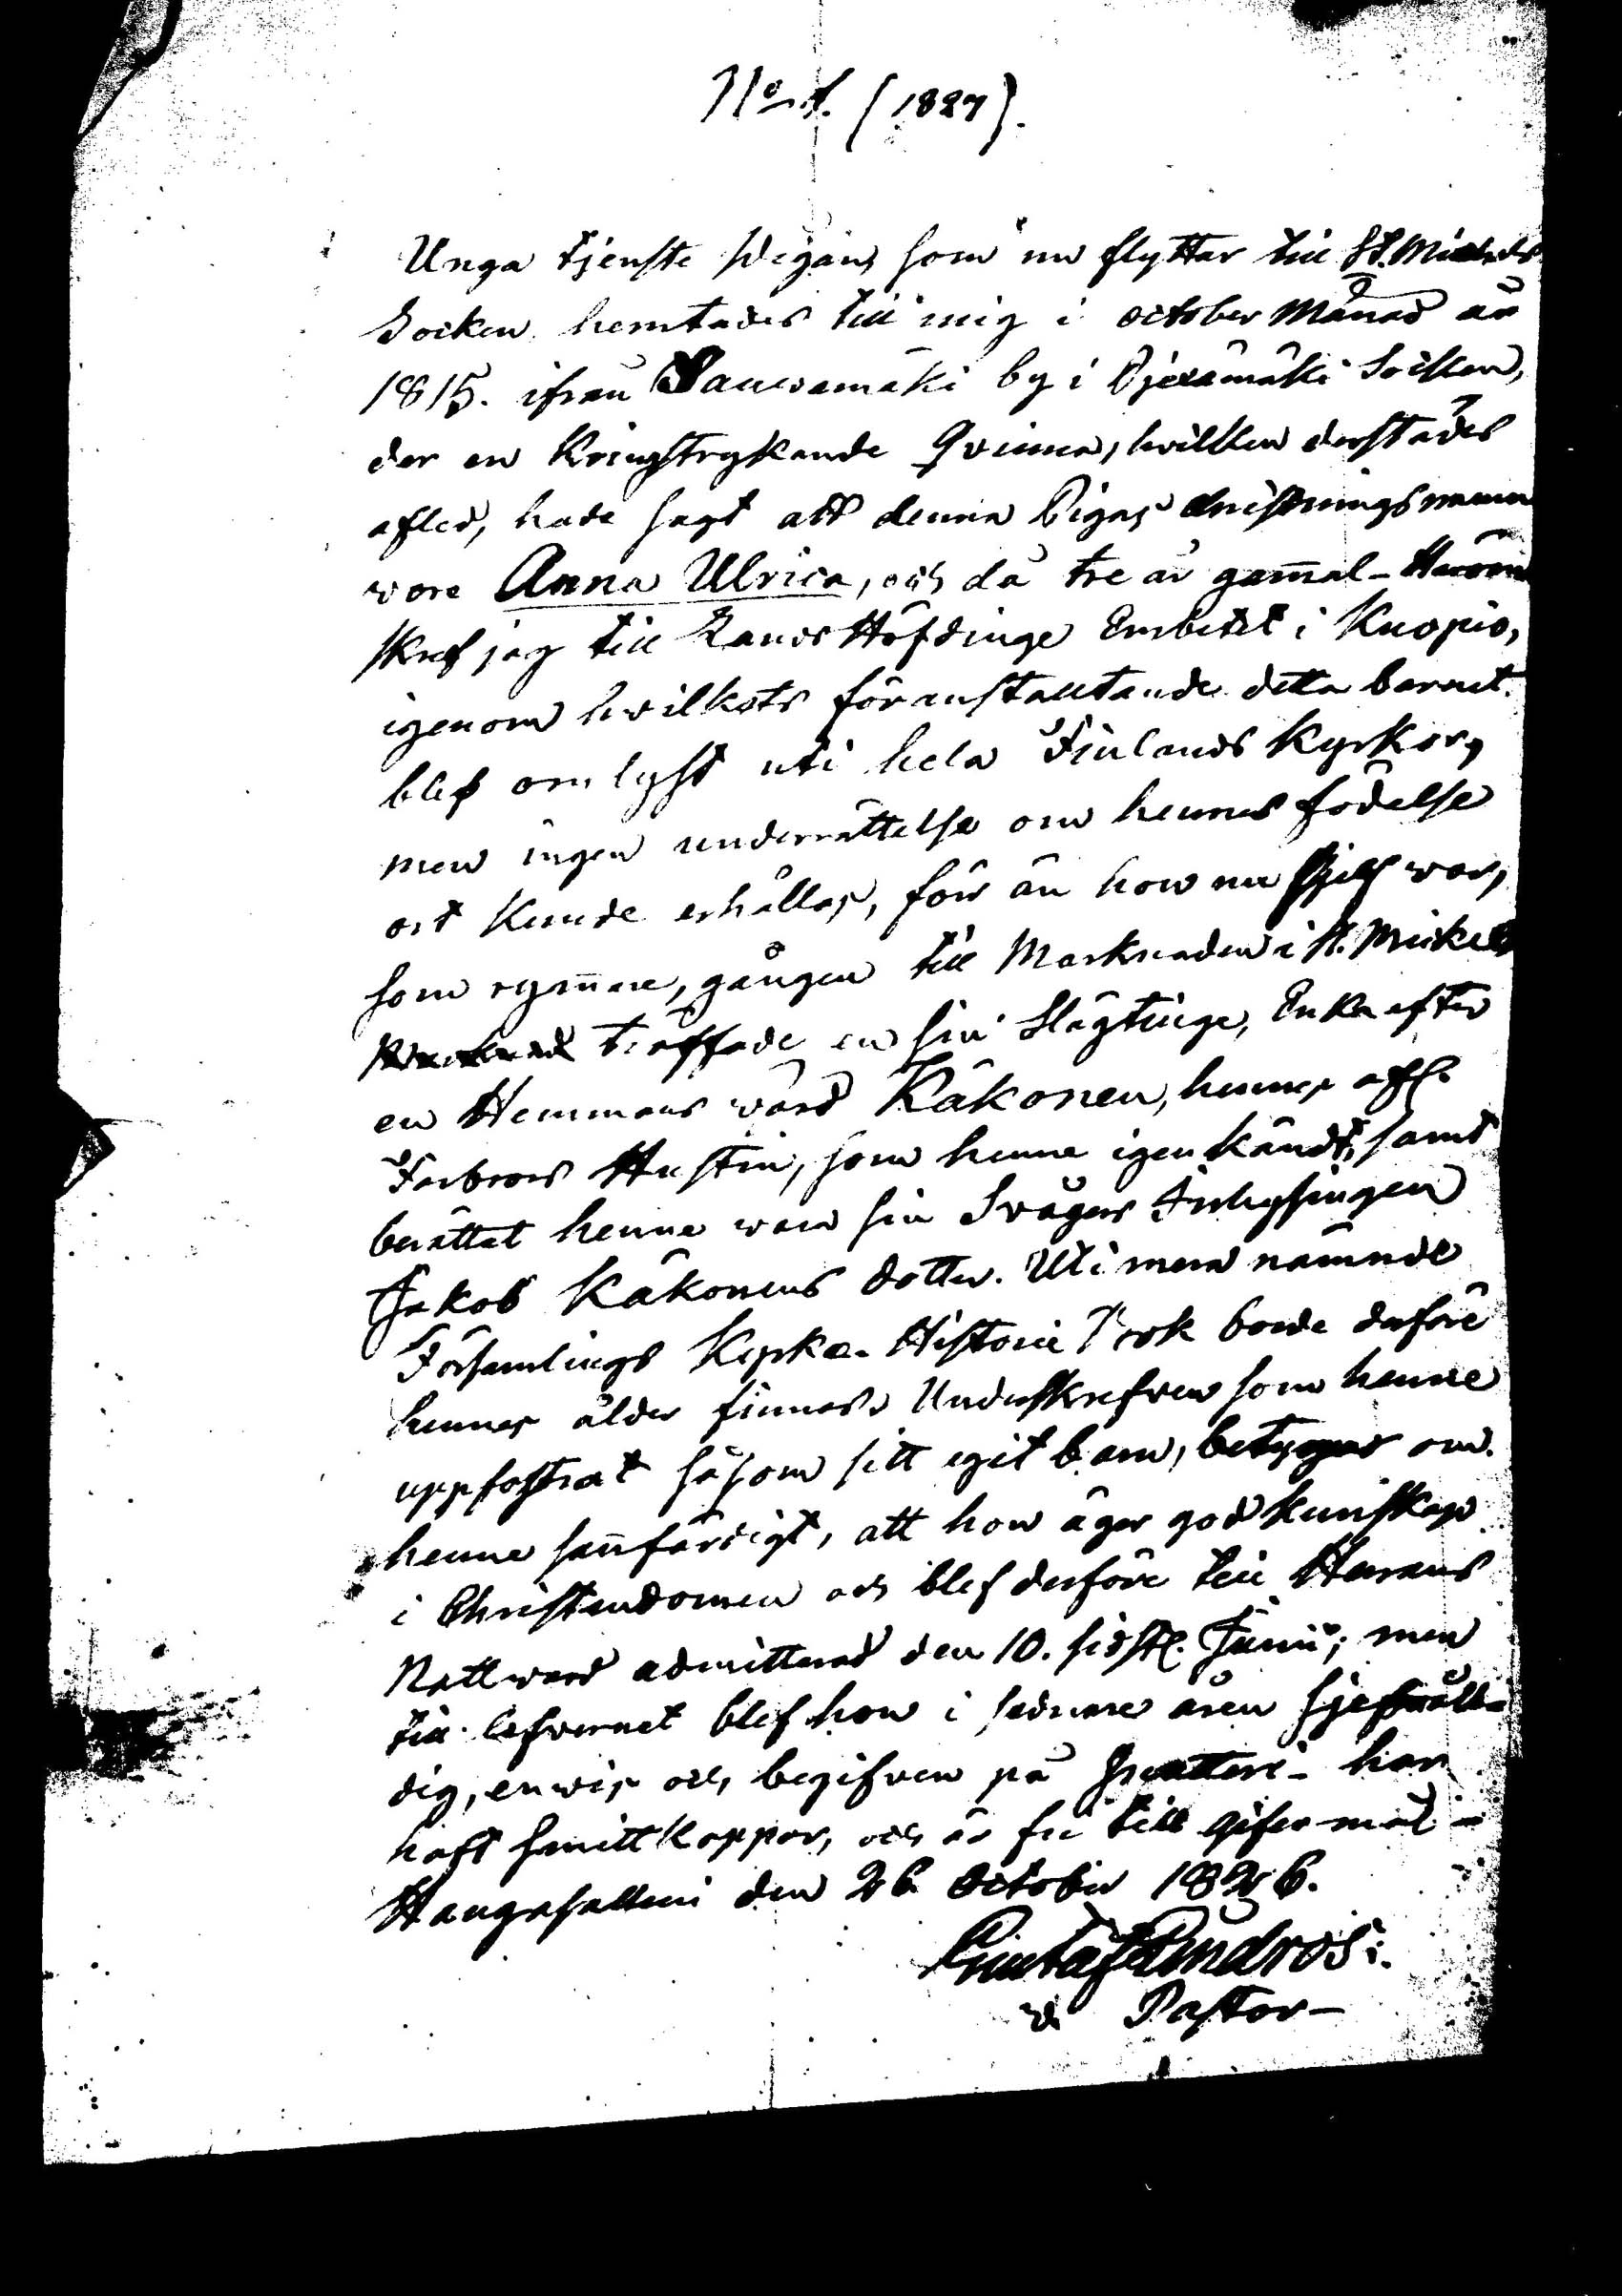 No 1. (1827).
Unga tjenste Pigan, som nu flyttar till St. Michels
Socken hemtades till mig i october Månad år
1815. ifrån Sauvamäki by i Pjexämäki Socken,
der en kringstrykande Qvinna, hvilken derstädes
afled, hade sagt att denna Pigas christningsnamn
vore Anna Ulrica, och då tre år gam̄al - Härom
skref jag till Lands Höfdinge Embetet i Kuopio,
igenom hvilkets föranstaltande detta barnet
blef omlyst uti hela Finlands Kyrkor,
men ingen underrättelse om hennes födelse
ort kunde erhållas, för än hon nu sjelf var,
som rym̄are, gången till Marknaden i St. Mickels
träffade en sin Slägtinge, Enka efter
en Hemmans värd Käkonen, hennes afl.
Farbrors Hustru, som henne igenkändt, samt
berättat henne vara sin Svågers Inhysingen
Jakob Käkonens dotter. Uti mera nämnde
Församlings Kyrko-Historie Bok borde derföre
hennes ålder finnas. Underskrefven som henne
uppfostrat såsom sitt egit barn, betygar om
henne san̄färdigt, att hon äger god kunskap
i Christendomen och blef derföre till Herrans
Nattvard admitterad den 10. sidstl. Junii; men
till lefvernet blef hon i sednare åren sjelfråd-
dig, envis och begifven på snatteri - har
haft smittkoppor, och är fri till giftermål -
Haugasalmi den 26 October 1826.
Gustaf Andros:
v. Pastor -